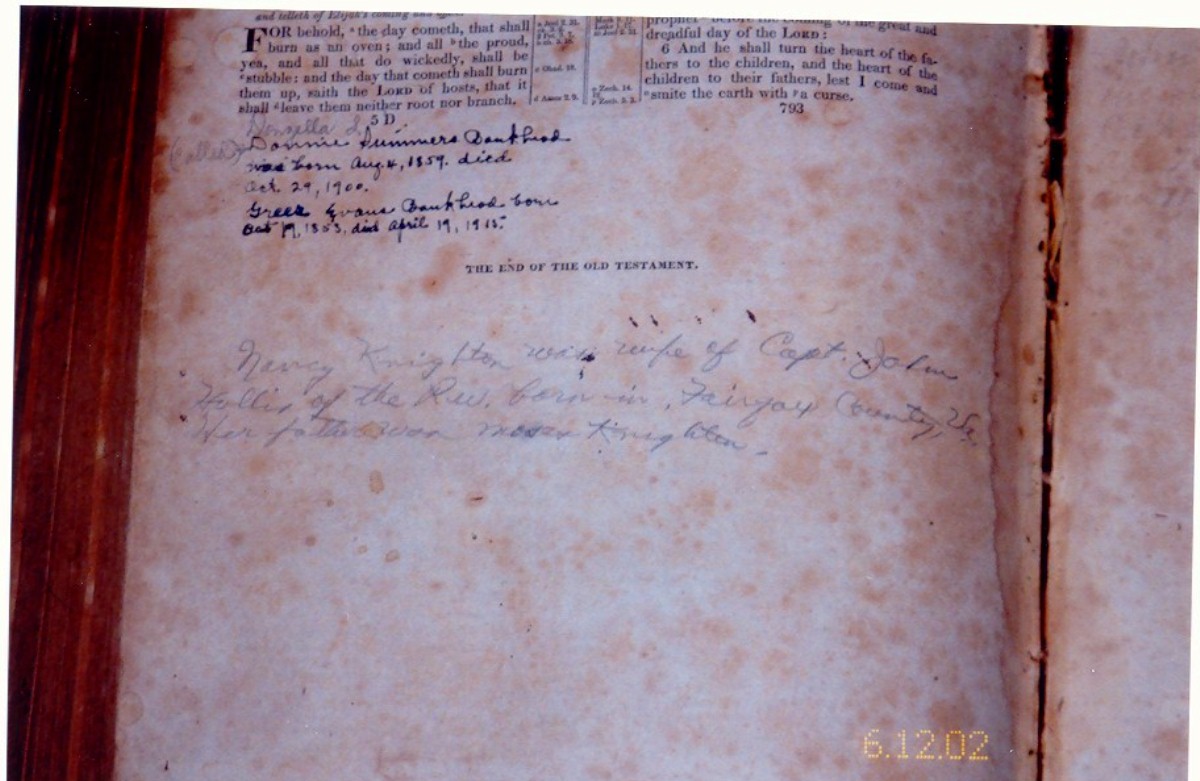 and telleth of Elijah's coming and office.
FOR behold, a the day cometh, that shall
burn as an oven; and all b the proud,
yea, and all that do wickedly, shall be
c stubble: and the day that cometh shall burn
them up, saith the LORD of hosts, that it
shall d leave them neither root nor branch.
a Joel 2. 31.
c Obad. 18.
d Amos 2. 9.
prophet before the coming of the great and
dreadful day of the LORD:
6 And he shall turn the heart of the fa-
thers to the children, and the heart of the
children to their fathers, lest I come and
o smite the earth with p a curse.
o Zech. 14.
p Zech. 5. 3.
793
5 D
(called)
Donnie Summers Bankhead
was born Aug. 4, 1859. died
Oct. 29, 1900.
Greer Evans Bankhead born
Oct 19, 1853, died April 19, 1915.
THE END OF THE OLD TESTAMENT.
Nancy Knighton was wife of Capt. John
Hollis of the Rev. born in Fairfax County, Va.
Her father was Moses Knighton.
6.12.02